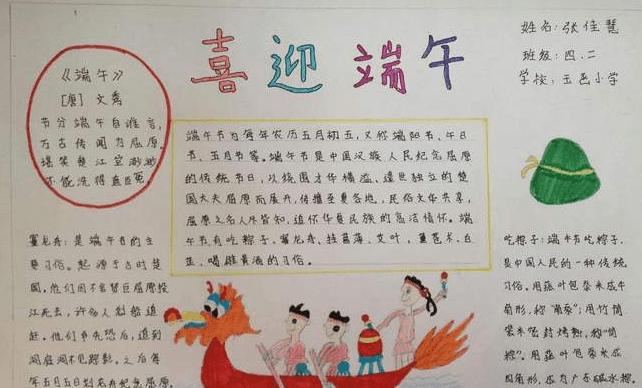 喜迎端午
姓名:张佳慧
班级:四.二
学校:玉邑小学
《端午》
[唐] 文秀
节分端午自谁言,
万古传闻为屈原。
堪笑楚江空渺渺
不能洗得直臣冤。
端午节为每年农历五月初五,又称端阳节、午日
节、五月节等。端午节是中国汉族人民纪念屈原
的传统节日,以绕围才华横溢、遗世独立的楚
国大夫屈原而展开,传播至夏各地,民俗文华共享,
屈原之名人尽皆知,追怀华夏民族的高洁情怀。端
午节有吃粽子,赛龙舟、挂菖蒲、艾叶,薰苍术、白
芷、喝雄黄酒的习俗。
赛龙舟:是端午日的主
要习俗。起源于古时楚
国,他们因不舍贤臣屈原投
江死去,许多人划船追
赶。他们争先恐后,追到
洞庭湖不见踪影。之后每
年五月五日划龙舟纪念屈原。
吃粽子:端午节吃粽子,
是中国人民的一种传统
习俗。用菰叶包黍米成牛
角形,称"角黍";用竹筒
装米密封烤熟,称"筒
粽"。用菰叶包黍米成
四角形,